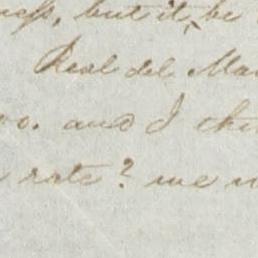 , but it, be
Real del Ma
oo. and I th
rate? we